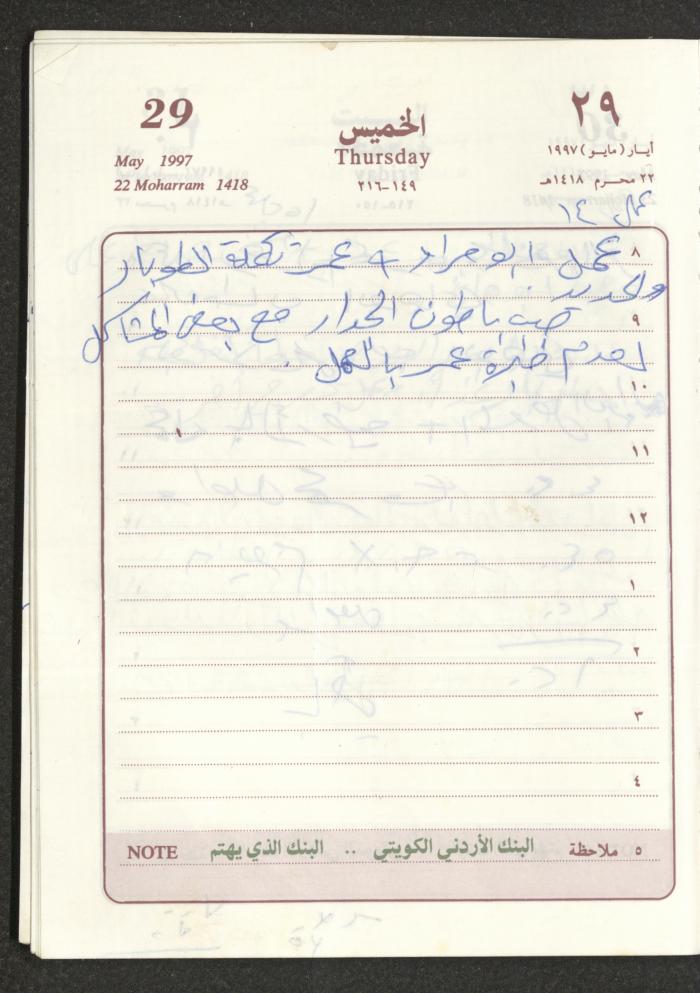 29
٢٩
الخميس
Thursday
May 1997
أيار (مايو) ١٩٩٧
22 Moharram 1418
١٤٩-٢١٦
٢٢ محرم ١٤١٨هـ
عمل ١٤
٨
عمل ابو مراد و عمر تكملة الطوبار
والحديد
٩
صب باطون الجدار مع بعض المشاكل
لعدم خبرة عمر بالعمل .
١٠
١١
١٢
١
٢
٣
٤
٥ ملاحظة البنك الأردني الكويتي .. البنك الذي يهتم NOTE